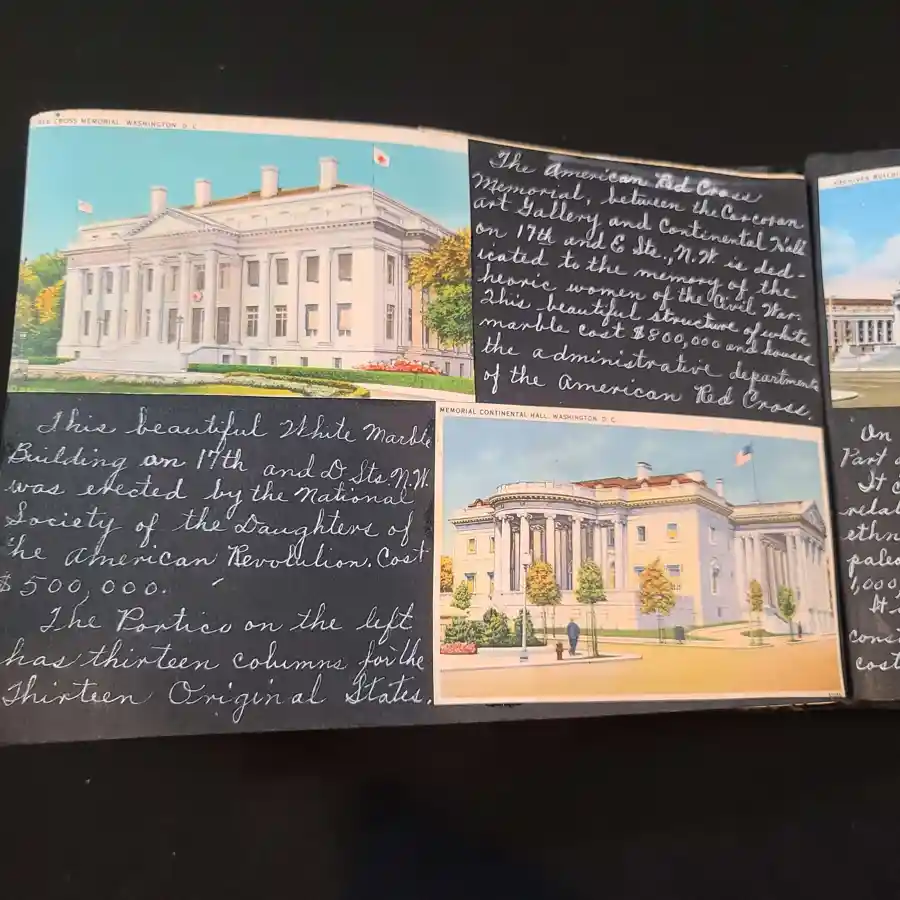 RED CROSS MEMORIAL, WASHINGTON D. C.
The American Red Cross
Memorial, between the Corcoran
art Gallery and Continental Hall
on 17th and E Sts., N.W is ded-
icated to the memory of the
heoric women of the Civil War.
This beautiful structure of white
marble cost $800,000 and houses
the administrative departments
of the American Red Cross.
This beautiful White Marble
Building on 17th and D Sts. N.W.
was erected by the National
Society of the Daughters of
the American Revolution. Cost
$500,000.
The Portico on the left
has thirteen columns for the
Thirteen Original States.
MEMORIAL CONTINENTAL HALL, WASHINGTON D. C.
ARCHIVES BUILDI
On
Part
It
relat
ethn
paleo
1,000,
It
const
cost